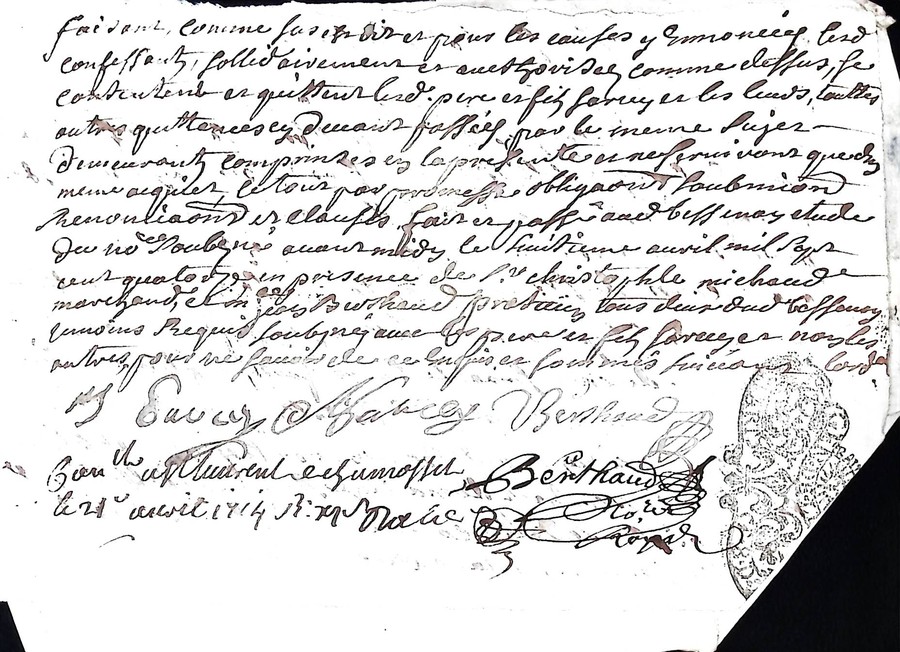 faisant, comme sus est dit et pour les causes y enoncées, lesd
confessants, sollidairement et authorisée comme dessus, se
contentent et quittent lesd. pere et fils farvex et les leurs, touttes
autres quittances cy devant passées par le meme sujet
demeurants comprinses en la presente et ne servivont que d'un
meme acquiet, le tout par promesse obligaons soubmiond
Renonciaons et clauses, fait et passé aud bessenay etude
du noe soubzné avant midy le huitieme avril mil sept
cent quatorze en presence de sr christophle michaud
marchand, et me Berthaud praticien tous deux dud bessenay
temoins Requis soubznés avec les pere et fils non les
autres pour ne savoir de ce enquis et sommés suivant lord
Berthaud
Con.lle a St Laurent de chamosset
le 21e avril 1714 R.
Berthaud
No.re
Royal